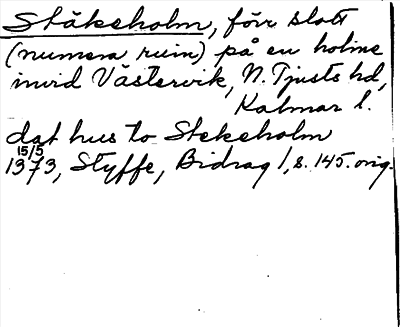 Stäkeholm, förr slott
(numera ruin) på en holme
invid Västervik, N. Tjusts hd,
Kalmar l.
dat hus to Stekeholm
15/5
1373, Styffe, Bidrag 1, s. 145. orig.